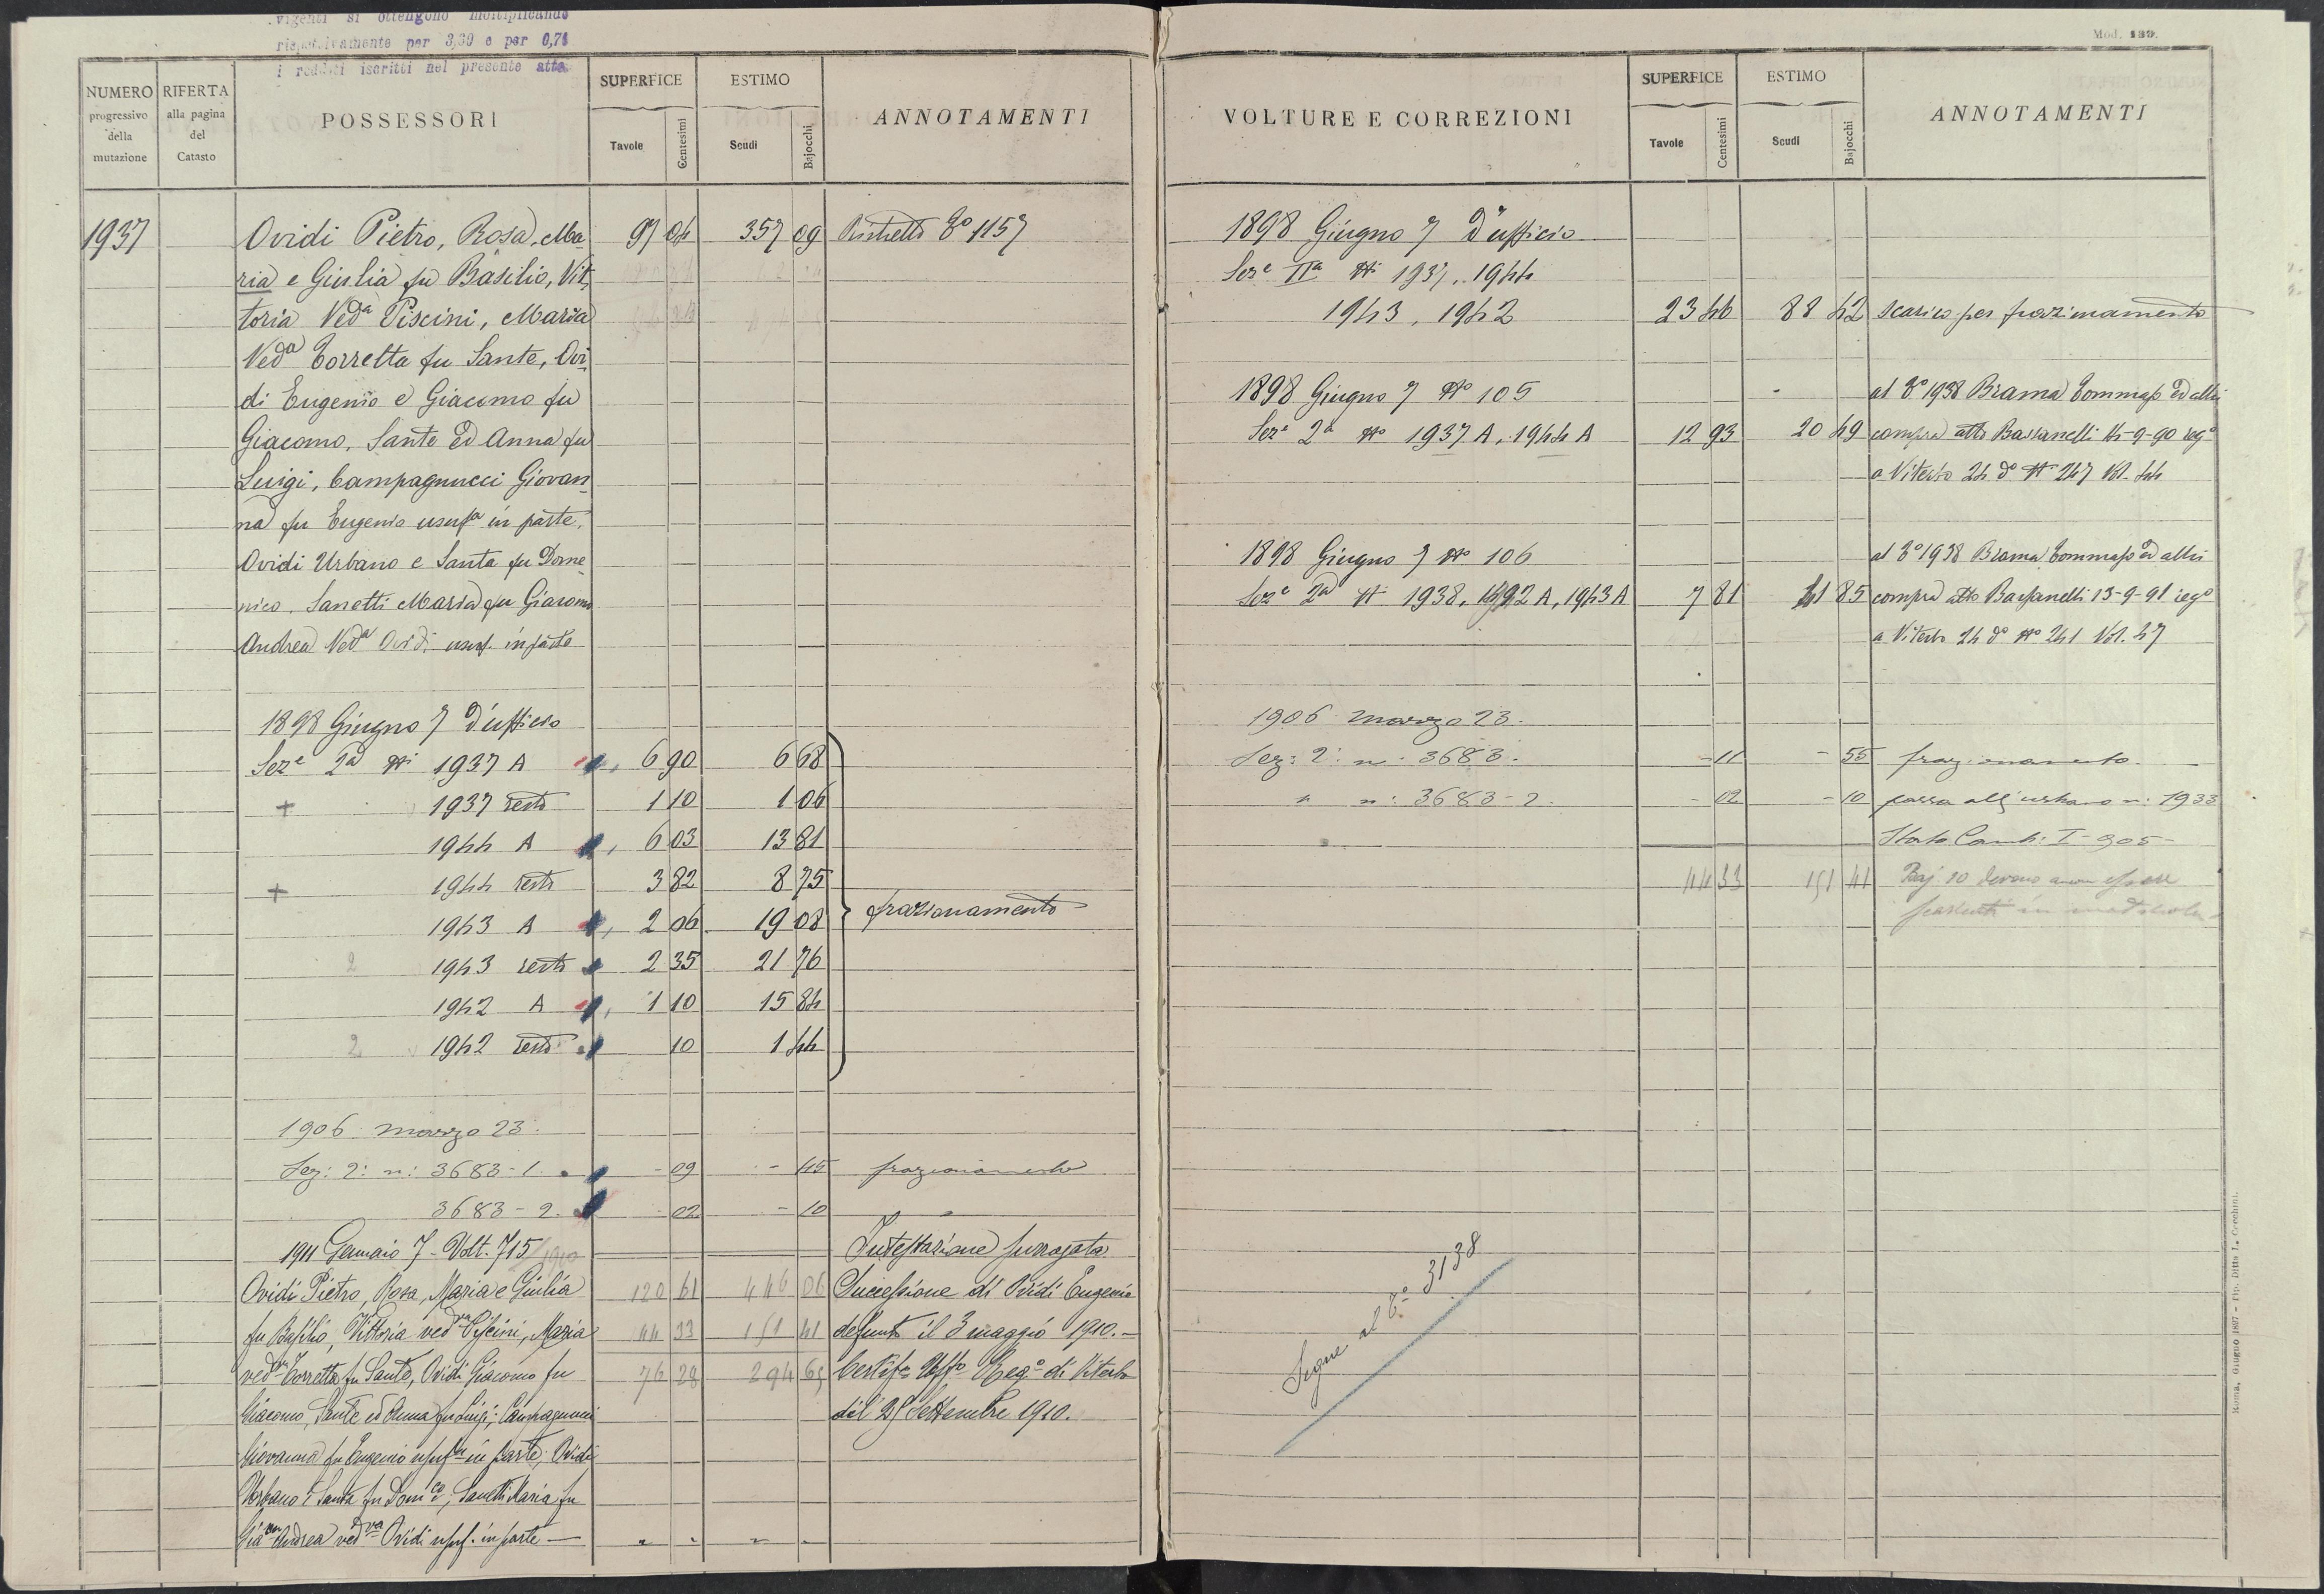 vigenti si ottengono moltiplicando
rispettivamente per 3,39 e per 0,71
i redditi iscritti nel presente atto
NUMERO progressivo della mutazione
RIFERTA alla pagina del Catasto
POSSESSORI
SUPERFICE Tavole Centesimi
ESTIMO Scudi Bajocchi
ANNOTAMENTI
1937 Ovidi Pietro, Rosa, Ma- 97 04 357 09 Ristretto 8º 1157
ria e Giulia fu Basilio, Vit-
toria Ved.a Piscini, Maria
Ved.a Torretta fu Sante, Ovi-
di Eugenio e Giacomo fu
Giacomo, Sante ed Anna fu
Luigi, Campagnucci Giovan-
na fu Eugenio usufa in parte,
Ovidi Urbano e Santa fu Dome-
nico. Sanetti Maria fu Giacomo
Andrea Ved.a Ovidi usuf. in parte
1898 Giugno 7 D'ufficio
Seze 2a Ni 1937 A 6 90 6 68
+ 1937 resto 1 10 1 06
1944 A 6 03 13 81
+ 1944 resto 3 82 8 75
1943 A 2 06 19 08 frazionamento
2 1943 resto 2 35 21 76
1942 A 1 10 15 84
2 1942 resto 10 1 44
1906 marzo 23.
Sez: 2: n: 3683-1. - 09 - 45 frazionamento
3683-2. - 02 - 10
1911 Gennaio 7 - Volt. 715/1910 Intestazione surrogata
Ovidi Pietro, Rosa, Maria e Giulia 120 61 446 06 Successione di Ovidi Eugenio
fu Basilio, Vittoria ved.va Piscini, Maria 44 33 151 41 defunto il 3 maggio 1910.-
ved.va Torretta fu Sante, Ovidi Giacomo fu 76 28 294 65 Certifto Uffo Rego di Viterbo
Giacomo, Sante ed Anna fu Luigi; Campagnucci del 25 Settembre 1910.
Giovanna fu Eugenio in parte; Ovidi
Urbano e Santa fu Domco; Sanetti Maria fu
Andrea ved.va Ovidi usuf. in parte -
Mod. 139.
VOLTURE E CORREZIONI
SUPERFICE Tavole Centesimi
ESTIMO Scudi Bajocchi
ANNOTAMENTI
1898 Giugno 7 D'ufficio
Seze IIa Ni 1937, 1944
1943, 1942 23 46 88 42 scarico per frazionamento
1898 Giugno 7 No 105 al 8º 1938 Brama Tommaso ed altri
Seze 2a No 1937 A, 1944 A 12 93 20 49 compra atto Bassanelli 4-9-90 rego
a Viterbo 24 do No 247 Vol. 44
1898 Giugno 7 No 106 al 8º 1938 Brama Tommaso ed altri
Seze 2a Ni 1938, 1942 A, 1943 A 7 81 41 85 compra atto Bassanelli 13-9-91 rego
a Viterbo 24 do No 241 Vol. 47
1906 marzo 23.
Sez: 2: n: 3683. - 11 - 55 frazionamento
" n: 3683-2. - 02 - 10 passa all'urbano n: 1933
Stato Camb: I-905-
44 33 151 41 Baj. 10 devono ancora essere
Segue al 8º 3138
Roma, Giugno 1897 - Tip. Ditta L. Cecchini.